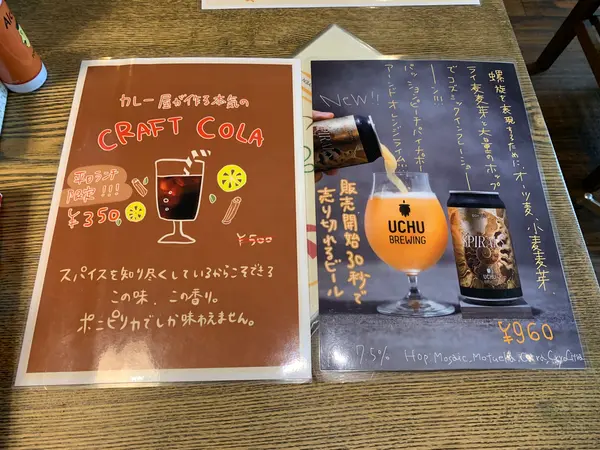 カレー屋が作る本気の
CRAFT COLA
平日ランチ
限定!!!
¥350
¥500
スパイスを知り尽くしているからこそできる
この味、この香り。
ポニピリカでしか味わえません。
螺旋を表現するためにオーツ麦、小麦麦芽、
ライ麦麦芽と大量のホップ
でコズミックインフレーション!!!
パッションピーチパイナポー
アーンドオレンジライム!!!
New!!
販売開始30秒で
売り切れるビール
UCHU
BREWING
SPIRAL
¥960
7.5% Hop. Mosaic. Motueka. Citra.